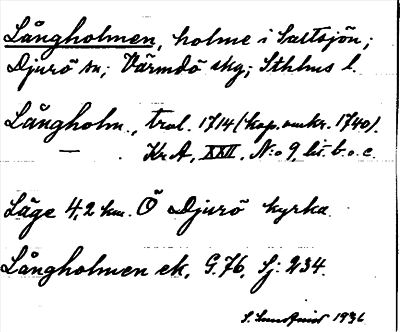 Långholmen, holme i Saltsjön;
Djurö sn; Värmdö skg; Sthlms l.
Långholm., trol. 1714 (kop. omkr. 1740).
— Kr A, XXII, N:o 9, lit. b. o. c.
Läge 4,2 km. Ö Djurö kyrka.
Långholmen ek, G.76, Sj: 234.
S. Sundquist 1936